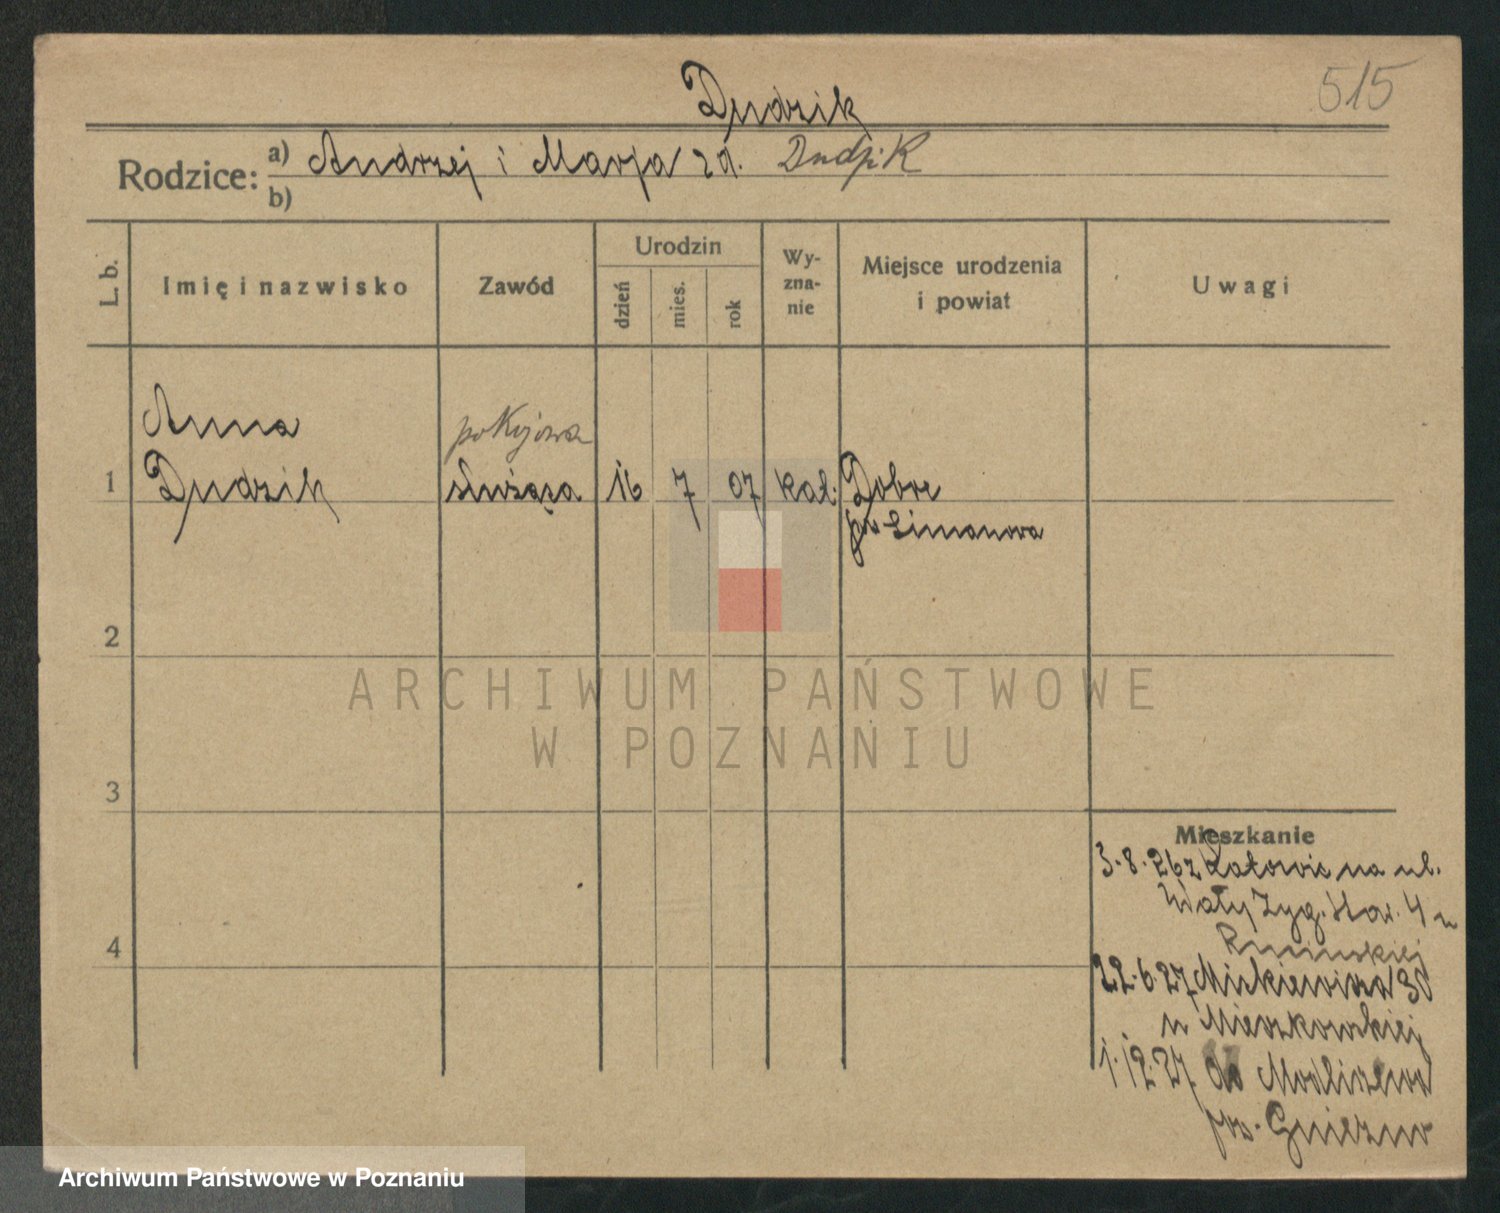 515
Dudzik
Rodzice: a) Andrzej i Marja zd. Dudzik
b)
L. b.
Imię i nazwisko
Zawód
Urodzin
dzień
mies.
rok
Wy-
zna-
nie
Miejsce urodzenia
i powiat
Uwagi
Anna
pokojowa
1 Dudzik służąca 16 7 07 kat. Dobre
pw Limanowa
2
ARCHIWUM PAŃSTWOWE
W POZNANIU
3
Mieszkanie
3.8.26 z Katowic na ul.
Wały Zyg. Star. 4 u
22.6.27 Mickiewicza 30
u Mieszkowskiej
1.12.27 do Modliszewa
pw. Gniezno
4
Archiwum Państwowe w Poznaniu